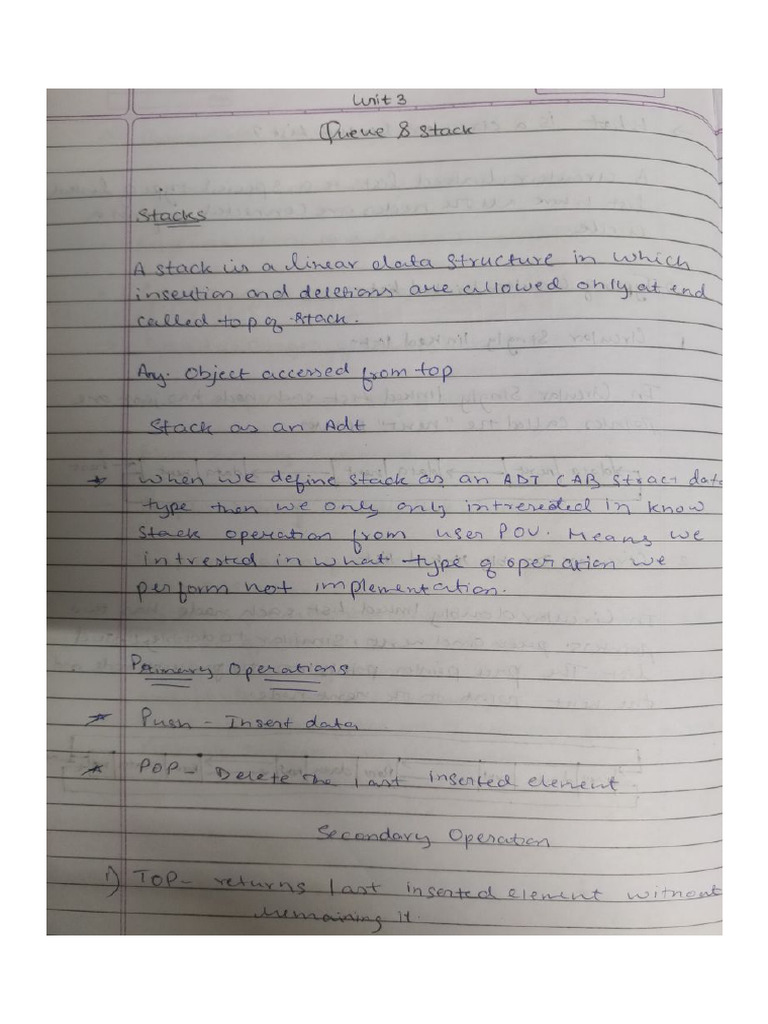 Unit 3
Queue & Stack
Stacks
A stack is a linear data structure in which
insertion and deletions are allowed only at end
called top of stack.
Any. Object accessed from top
Stack as an Adt
* When we define stack as an ADT (ABStract data
type then we only only intrerested in know
Stack operation from user POV. Means we
intrested in what type of operation we
perform not implementation.
Primary Operations
* Push - Insert data
* POP - Delete the last inserted element
Secondary Operation
i) TOP - returns last inserted element without
remaining it.